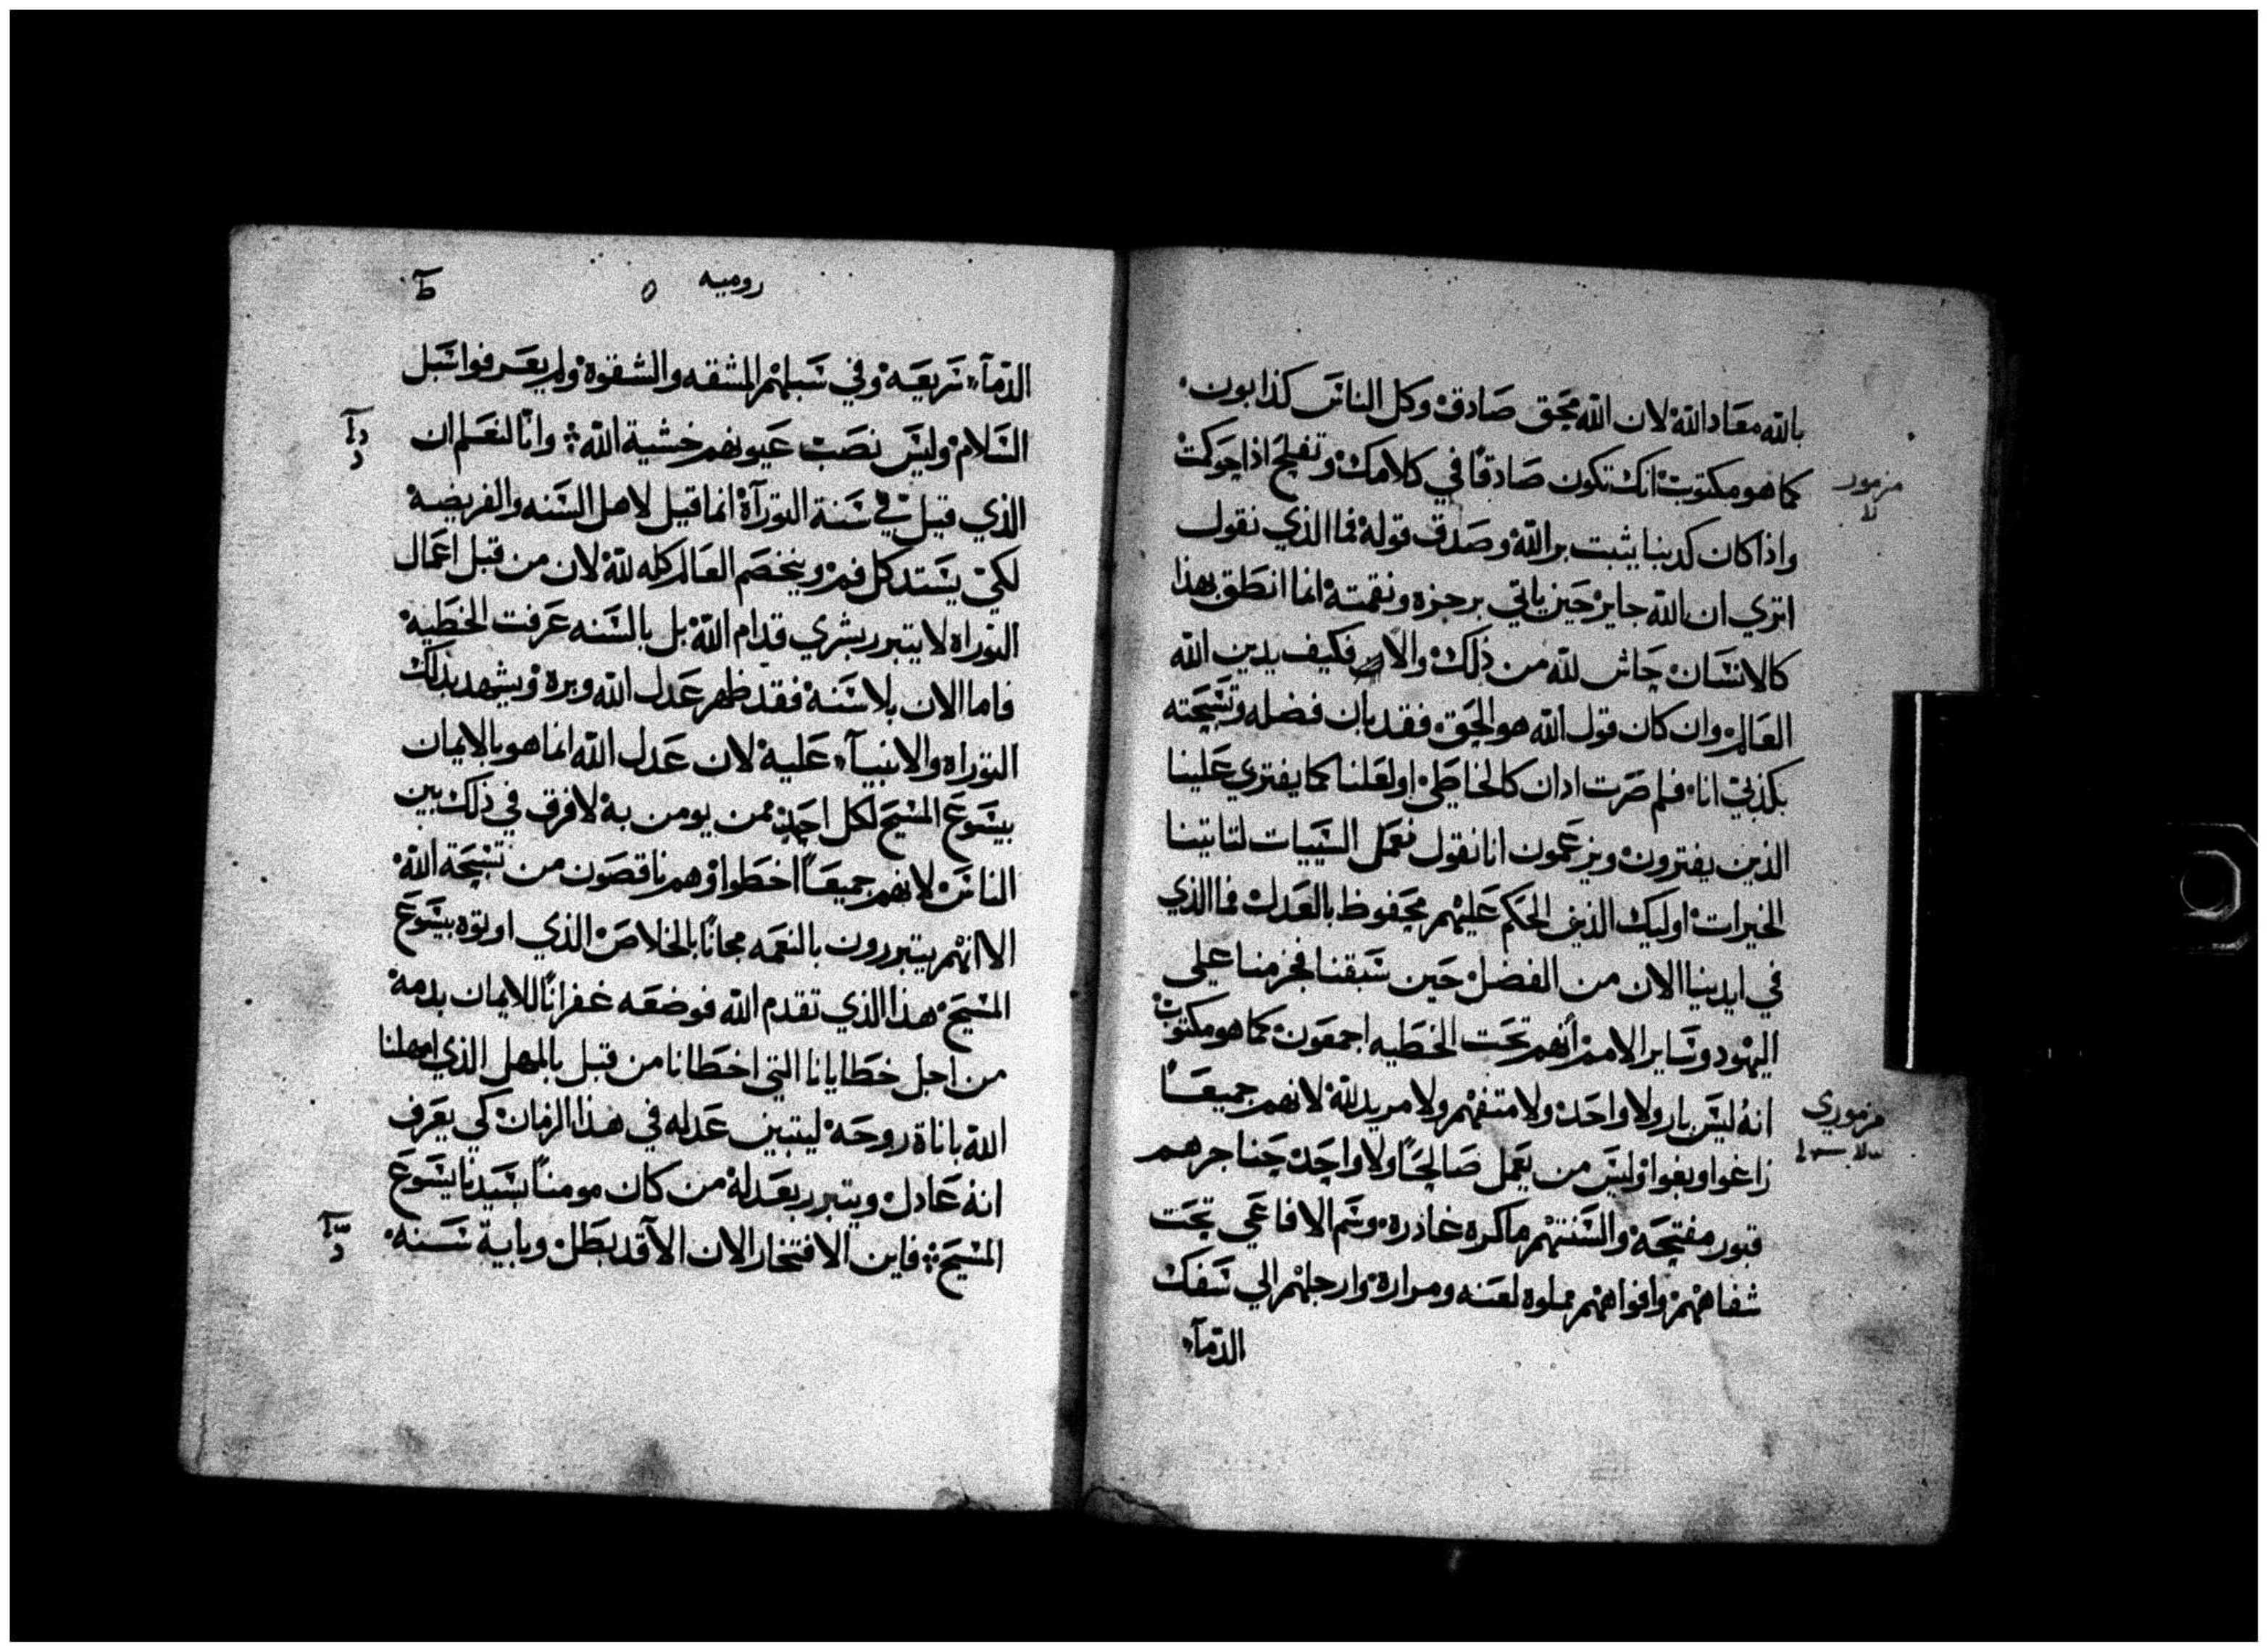 بالله معاد الله لان الله محق صادق وكل الناس كذابون
كما هو مكتوب انك تكون صادقًا في كلامك وتفلح اذا حوكمت
مزمور
واذا كان كدبنا يثبت بر الله وصدق قوله فما الذي نقول
اتري ان الله جاير حين ياتي برجزه ونقمته انما انطق بهذا
كالانسان حاش لله من ذلك والا فكيف يدين الله
العالم وان كان قول الله هو الحق فقد بان فضله وتسبحته
بكذبي انا فلم صرت ادان كالخاطي او لعلنا كما يفتري علينا
الذين يفترون ويزعمون انا نقول نعمل السييات لتاتينا
الخيرات اوليك الذين الحكم عليهم محفوظ بالعدل فما الذي
في ايدينا الان من الفضل حين سبقنا فجزمنا علي
اليهود وساير الامم انهم تحت الخطيه اجمعون كما هو مكتوب
انه ليس بار ولا واحد ولا متفهم ولا مريد لله لانهم جميعًا
مزموري
زاغوا وبغوا وليس من يعمل صالحًا ولا واحد حناجرهم
قبور مفتحه والسنتهم ماكره غادره وسم الافاعي تحت
شفاههم وافواههم مملوه لعنه ومراره وارجلهم الي سفك
الدمآء
روميه
ط
الدمآء سريعه وفي سبلهم المشقه والشقوة ولم يعرفوا سبل
السلام وليس نصب عيونهم خشية الله وانا لنعلم ان
الذي قيل في سنة التورآة انما قيل لاهل السنه والفريضه
لكي يستد كل فم وينخصم العالم كله لله لان من قبل اعمال
التوراه لا يتبرر بشري قدام الله بل بالسنه عرفت الخطيه
فاما الان بلا سنة فقد ظهر عدل الله وبره ويشهد بذلك
التوراه والانبيآء عليه لان عدل الله انما هو بالايمان
بيسوع المسيح لكل احد ممن يومن به لا فرق في ذلك بين
الناس لانهم جميعًا اخطوا وهم ناقصون من تسبحة الله
الا انهم يتبررون بالنعمه مجانًا بالخلاص الذي اوتوه بيسوع
المسيح هذا الذي تقدم الله فوضعه غفرانًا للايمان بدمه
من اجل خطايانا التي اخطانا من قبل بالمهل الذي امهلنا
الله باناة روحه ليتبين عدله في هذا الزمان كي يعرف
انه عادل ويتبرر بعدله من كان مومنًا بسيدنا يسوع
المسيح فاين الافتخار الان الآ قد بطل وباية سنه